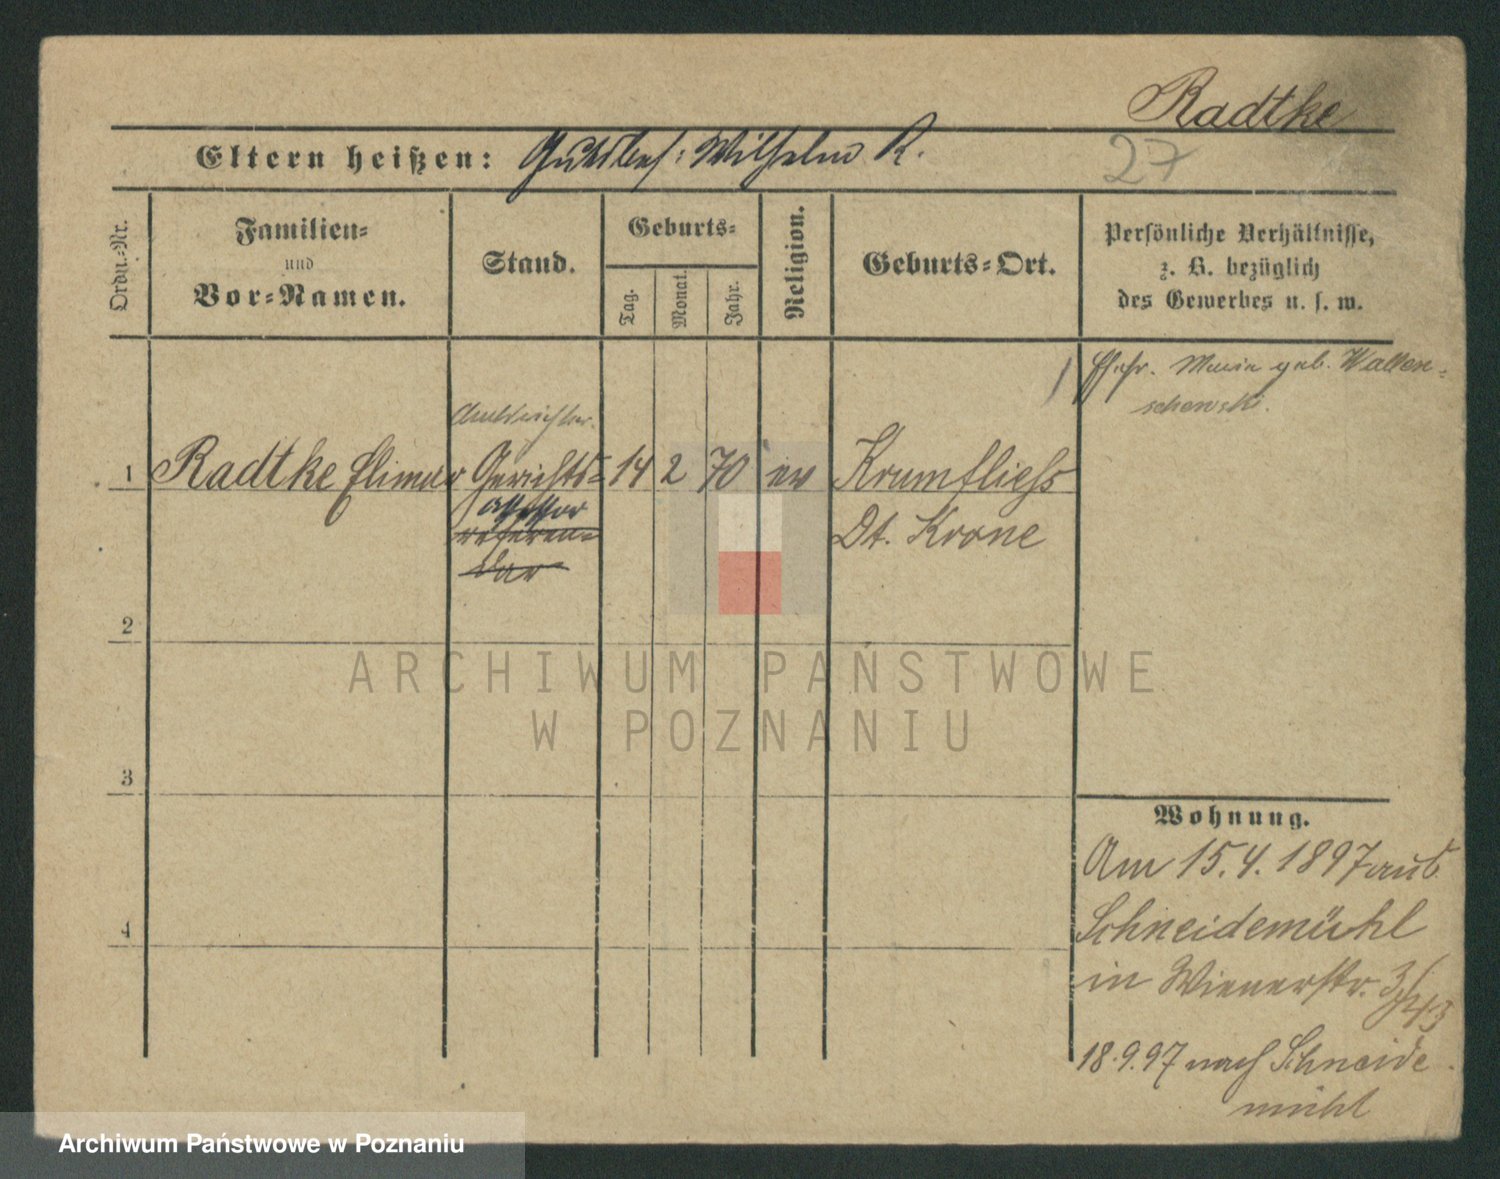 Radtke
27
Eltern heißen: Gutsbes: Wilhelm R.
Ordn.-Nr.
Familien-
und
Vor-Namen.
Stand.
Geburts-
Tag.
Monat.
Jahr.
Religion.
Geburts-Ort.
Persönliche Verhältnisse,
z. B. bezüglich
des Gewerbes u. s. w.
Ehefr. Marie geb. Wallen-
schewski.
Amtsrichter.
1 Radtke Elimar Gerichts- 14 2 70 ev Krumfliess
assessor
referen-
dar
Dt. Krone
2
3
4
Wohnung.
Am 15.4.1897 aus
Schneidemühl
in Wienerstr.
18.9.97 nach Schneide
mühl
ARCHIWUM PAŃSTWOWE
W POZNANIU
Archiwum Państwowe w Poznaniu